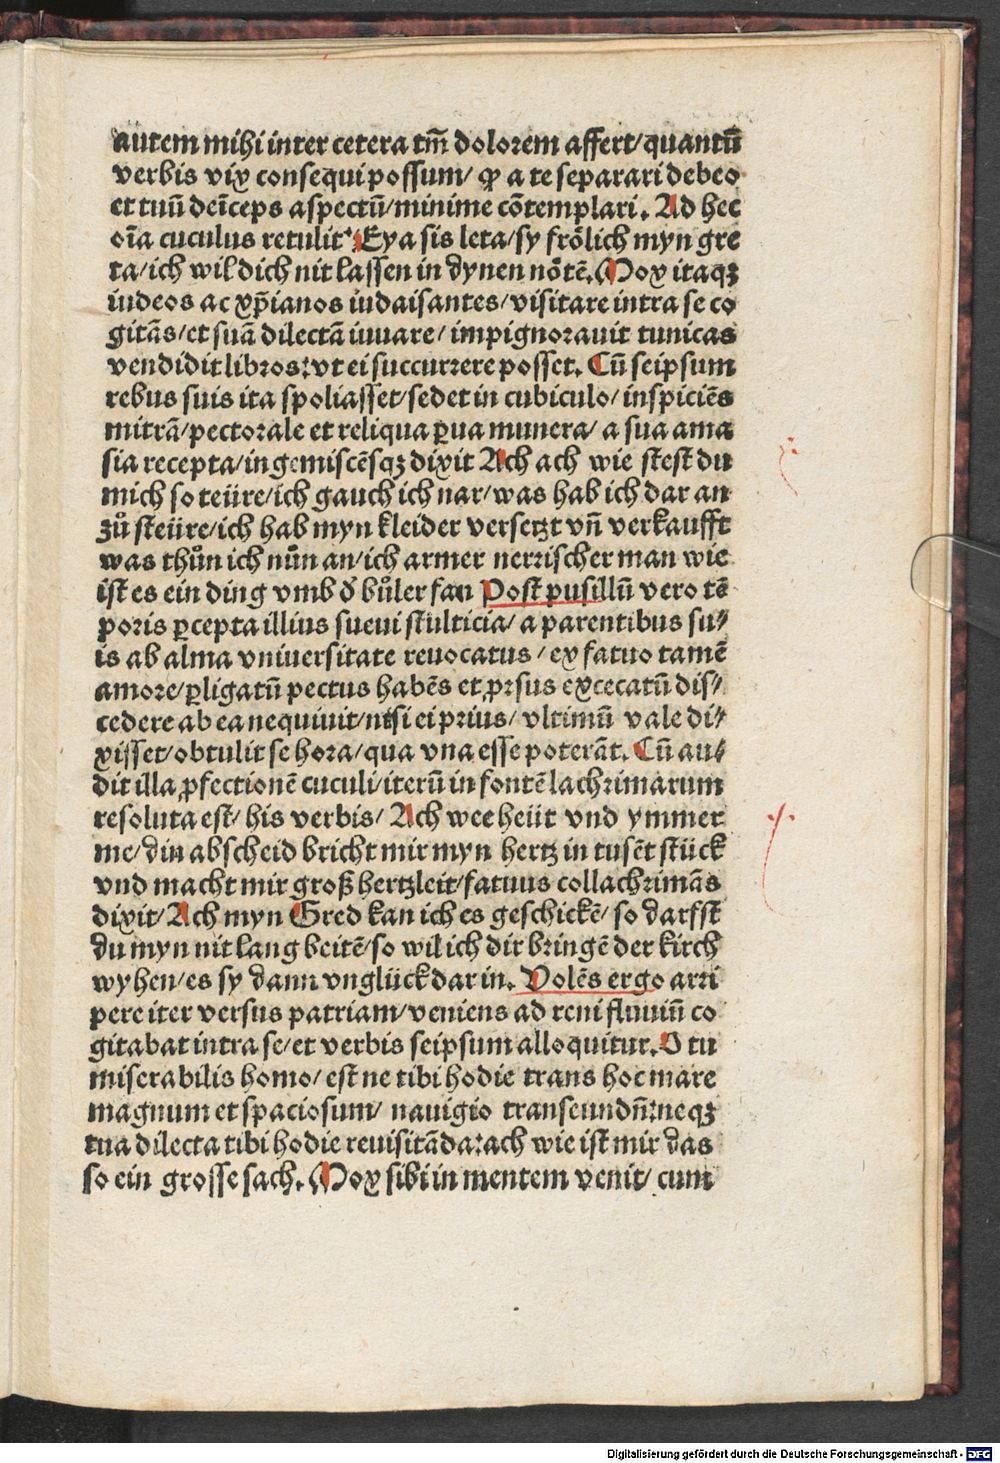 autem mihi inter cetera tm̄ dolorem affert/quantū
verbis vix consequi possum/ ꝙ a te separari debeo
et tuū deīceps aspectū/minime cōtemplari. Ad hec
oīa cuculus retulit Eya sis leta/sy frölich myn gre
ta/ich wil dich nit lassen in dynen nötē. Mox itaqꝫ
iudeos ac xp̄ianos iudaisantes/visitare intra se co
gitās/et suā dilectā iuuare/ impignorauit tunicas
vendidit libros:vt ei succurrere posset. Cū seipsum
rebus suis ita spoliasset/sedet in cubiculo/inspiciēs
mitrā/pectorale et reliqua ꝑua munera/ a sua ama
sia recepta/ingemiscēsqꝫ dixit Ach ach wie stest du
mich so teüre/ich gauch ich nar/was hab ich dar an
zů steüre/ich hab myn kleider versetzt vn̄ verkaufft
was thůn ich nůn an/ich armer nerrischer man wie
ist es ein ding vmb ð bůler fan Post pusillū vero tē
poris ꝑcepta illius sueui stulticia/a parentibus su/
is ab alma vniuersitate reuocatus/ex fatuo tamē
amore/ꝑligatū pectus habēs et ꝓrsus excecatū dis/
cedere ab ea nequiuit/nisi ei prius/vltimū vale di/
xisset/obtulit se hora/qua vna esse poterāt. Cū au/
dit illa ꝓfectionē cuculi/iterū in fontē lachrimarum
resoluta est/ his verbis/ Ach wee heüt vnd ymmer
me/din abscheid bricht mir myn hertz in tusēt stück
vnd macht mir groß hertzleit/fatuus collachrimās
dixit/Ach myn Gred kan ich es geschickē/so darfst
du myn nit lang beitē/so wil ich dir bringē der kirch
wyhen/es sy dann vnglück dar in. Volēs ergo arri
pere iter versus patriam/veniens ad reni fluuiū co
gitabat intra se/et verbis seipsum alloquitur. O tu
miserabilis homo/est ne tibi hodie trans hoc mare
magnum et spaciosum/ nauigio transeundū:neqꝫ
tua dilecta tibi hodie reuisitāda:ach wie ist mir das
so ein grosse sach. Mox sibi in mentem venit/ cum
Digitalisierung gefördert durch die Deutsche Forschungsgemeinschaft - DFG